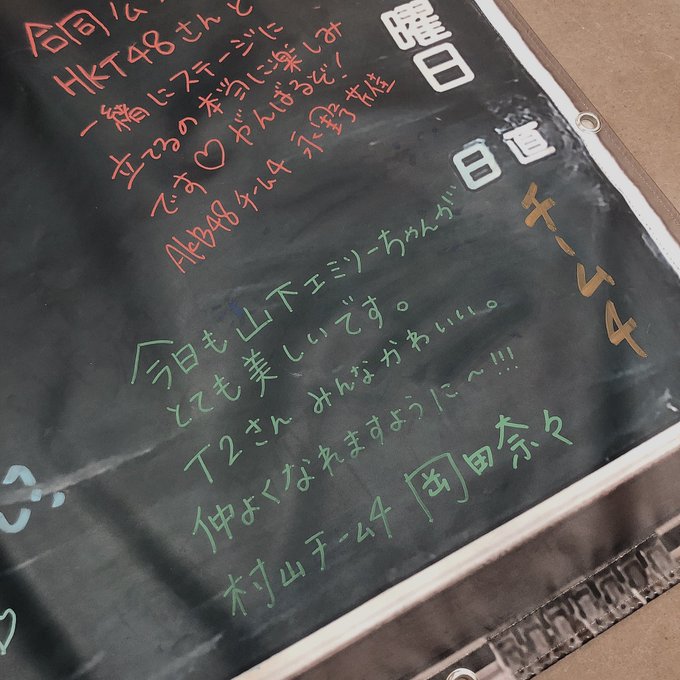 合同公
HKT48さんと
一緒にステージに
立てるの本当に楽しみ
です♡がんばるぞ!
AKB48 チーム4 永野芹佳
曜日
日直
チーム4
今日も山下エミリーちゃんが
とても美しいです。
T2さん みんなかわいい。
仲よくなれますように〜!!!
村山チーム4 岡田奈々